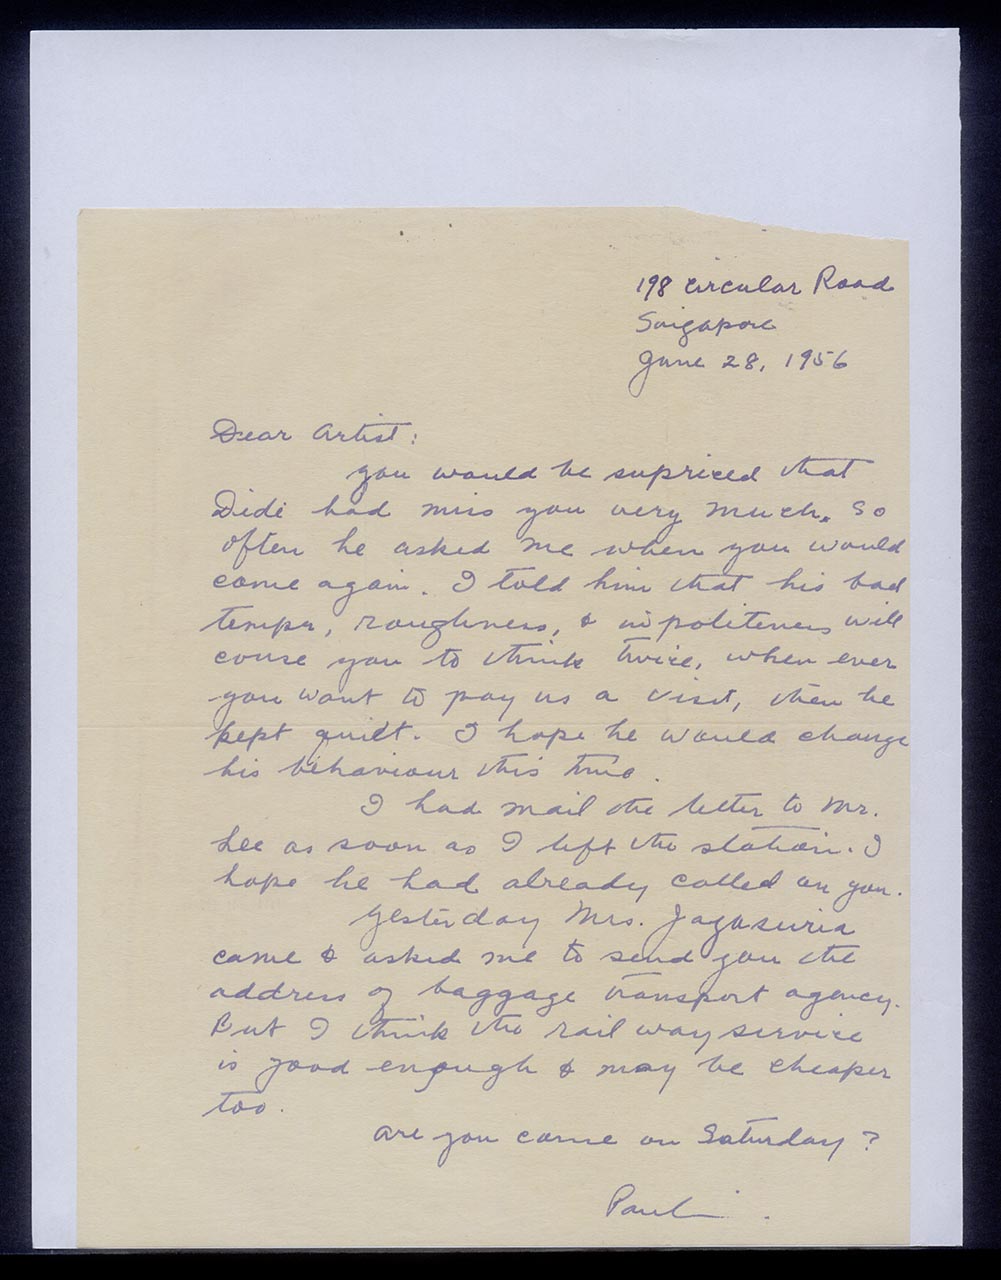 198 Circular Road
Singapore
June 28, 1956
Dear Artist:
you would be supriced that
Didi had miss you very much. So
often he asked me when you would
come again. I told him that his bad
temper, roughness, & inpoliteness will
couse you to think twice, when ever
you want to pay us a visit, then he
kept quilt. I hope he would change
his behaviour this time.
I had mail the letter to Mr.
Lee as soon as I left the station. I
hope he had already called on you.
Yesterday Mrs. Jayasuria
came & asked me to send you the
address of baggage transport agency.
But I think the rail way service
is good enough & may be cheaper
too.
Are you come on Saturday?